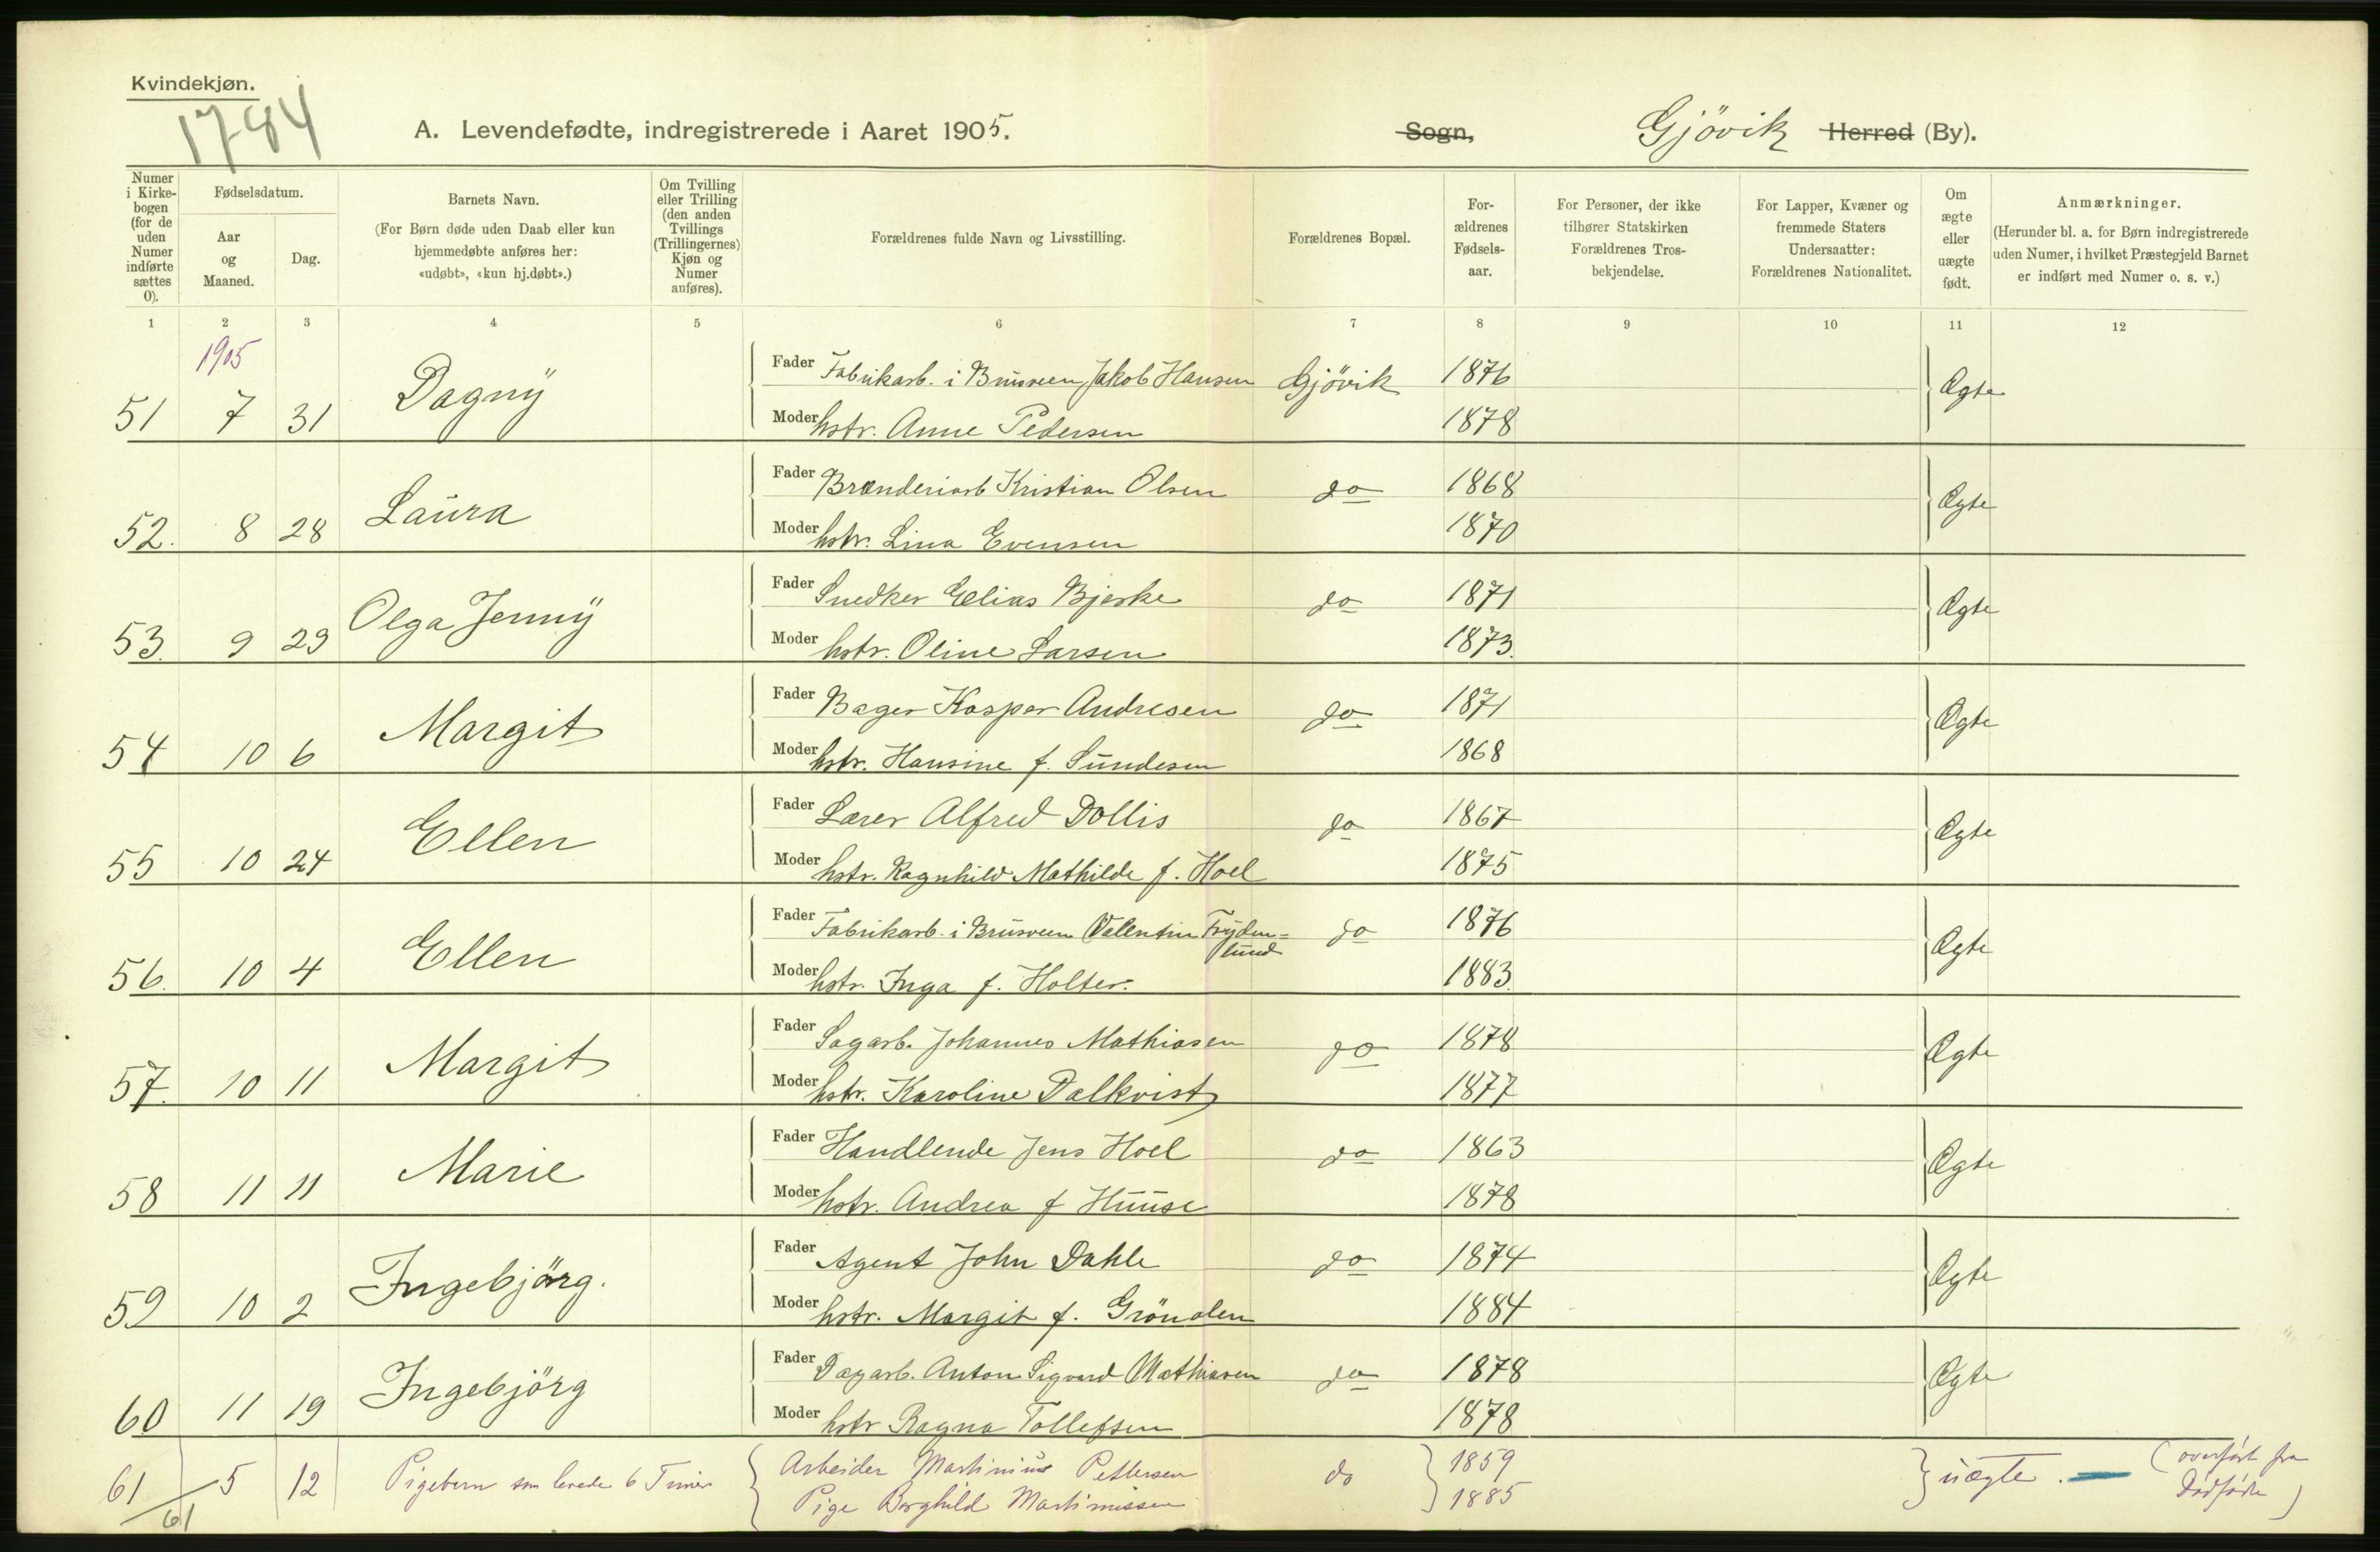 Kvindekjøn.
1784
A. Levendefødte, indregistrerede i Aaret 1905.
Sogn, Gjövik Herred (By).
Numer i Kirkebogen (for de uden Numer indførte sættes 0).
Fødselsdatum.
Aar og Maaned.
Dag.
Barnets Navn.
(For Børn døde uden Daab eller kun hjemmedøbte anføres her: «udøbt», «kun hj.døbt».)
Om Tvilling eller Trilling (den anden Tvillings (Trillingernes) Kjøn og Numer anføres).
Forældrenes fulde Navn og Livsstilling.
Forældrenes Bopæl.
For-ældrenes Fødsels-aar.
For Personer, der ikke tilhører Statskirken Forældrenes Tros-bekjendelse.
For Lapper, Kvæner og fremmede Staters Undersaatter: Forældrenes Nationalitet.
Om ægte eller uægte født.
Anmærkninger.
(Herunder bl. a. for Børn indregistrerede uden Numer, i hvilket Præstegjeld Barnet er indført med Numer o. s. v.)
1 2 3 4 5 6 7 8 9 10 11 12
1905
51 7 31 Dagny Fader Fabrikarb. i Brusveen, Jakob Hansen Gjövik 1876 Ægte
Moder hstr. Anne Pedersen 1878
52. 8 28 Laura Fader Brænderiarb Kristian Olsen do 1868 Ægte
Moder hstr. Lina Evensen 1870
53. 9 29 Olga Jenny Fader Snedker Elias Bjerke do 1871 Ægte
Moder hstr. Oline Larsen 1873.
54 10 6 Margit Fader Bager Kasper Andresen do 1871 Ægte
Moder hstr. Hansine f. Sundesen 1868
55 10 24 Ellen Fader Lærer Alfred Dollis do 1867 Ægte
Moder hstr. Ragnhild Mathilde f. Hoel 1875
56. 10 4 Ellen Fader Fabrikarb. i Brusveen Valentin Fryden=lund do 1876 Ægte
Moder hstr. Inga f. Holter. 1883.
57. 10 11 Margit Fader Sagarb. Johannes Mathiasen do 1878 Ægte
Moder hstr. Karoline Dalkvist 1877
58 11 11 Marie Fader Handlende Jens Hoel do 1863 Ægte
Moder hstr. Andrea f Huuse 1878
59 10 2 Ingebjörg. Fader Agent John Dahle do 1874 Ægte
Moder hstr. Margit f. Grönolen 1884
60 11 19 Ingebjörg Fader Dagarb. Anton Sigvard Mathiasen do 1878 Ægte
Moder hstr Ragna Tollefsen 1878
61 5 12 Pigebarn som levede 6 Timer Arbeider Martinius Pettersen do 1859 uægte. (overført fra
61 Pige Borghild Martinissen 1885 Dødfødte)